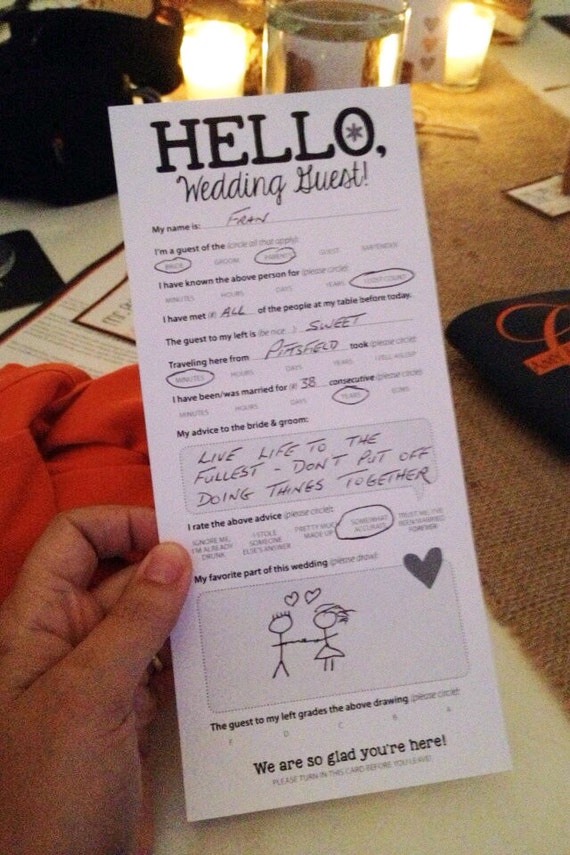 HELLO,
Wedding Guest!
My name is: FRAN
I'm a guest of the (circle all that apply):
BRIDE GROOM PARENTS GUEST BARTENDER
I have known the above person for (please circle):
MINUTES HOURS DAYS YEARS
I have met (#) ALL of the people at my table before today.
The guest to my left is (be nice...) SWEET
Traveling here from PITTSFIELD took (please circle):
MINUTES HOURS DAYS YEARS I FELL ASLEEP
I have been/was married for (#) 38 consecutive (please circle):
MINUTES HOURS DAYS YEARS EONS
My advice to the bride & groom:
LIVE LIFE TO THE
FULLEST - DON'T PUT OFF
DOING THINGS TOGETHER
I rate the above advice (please circle):
IGNORE ME, I'M ALREADY DRUNK
I STOLE SOMEONE ELSE'S ANSWER
PRETTY MUCH MADE UP
SOMEWHAT ACCURATE
TRUST ME, I'VE BEEN MARRIED FOREVER
My favorite part of this wedding (please draw):
The guest to my left grades the above drawing (please circle):
F D C B A
We are so glad you're here!
PLEASE TURN IN THIS CARD BEFORE YOU LEAVE!